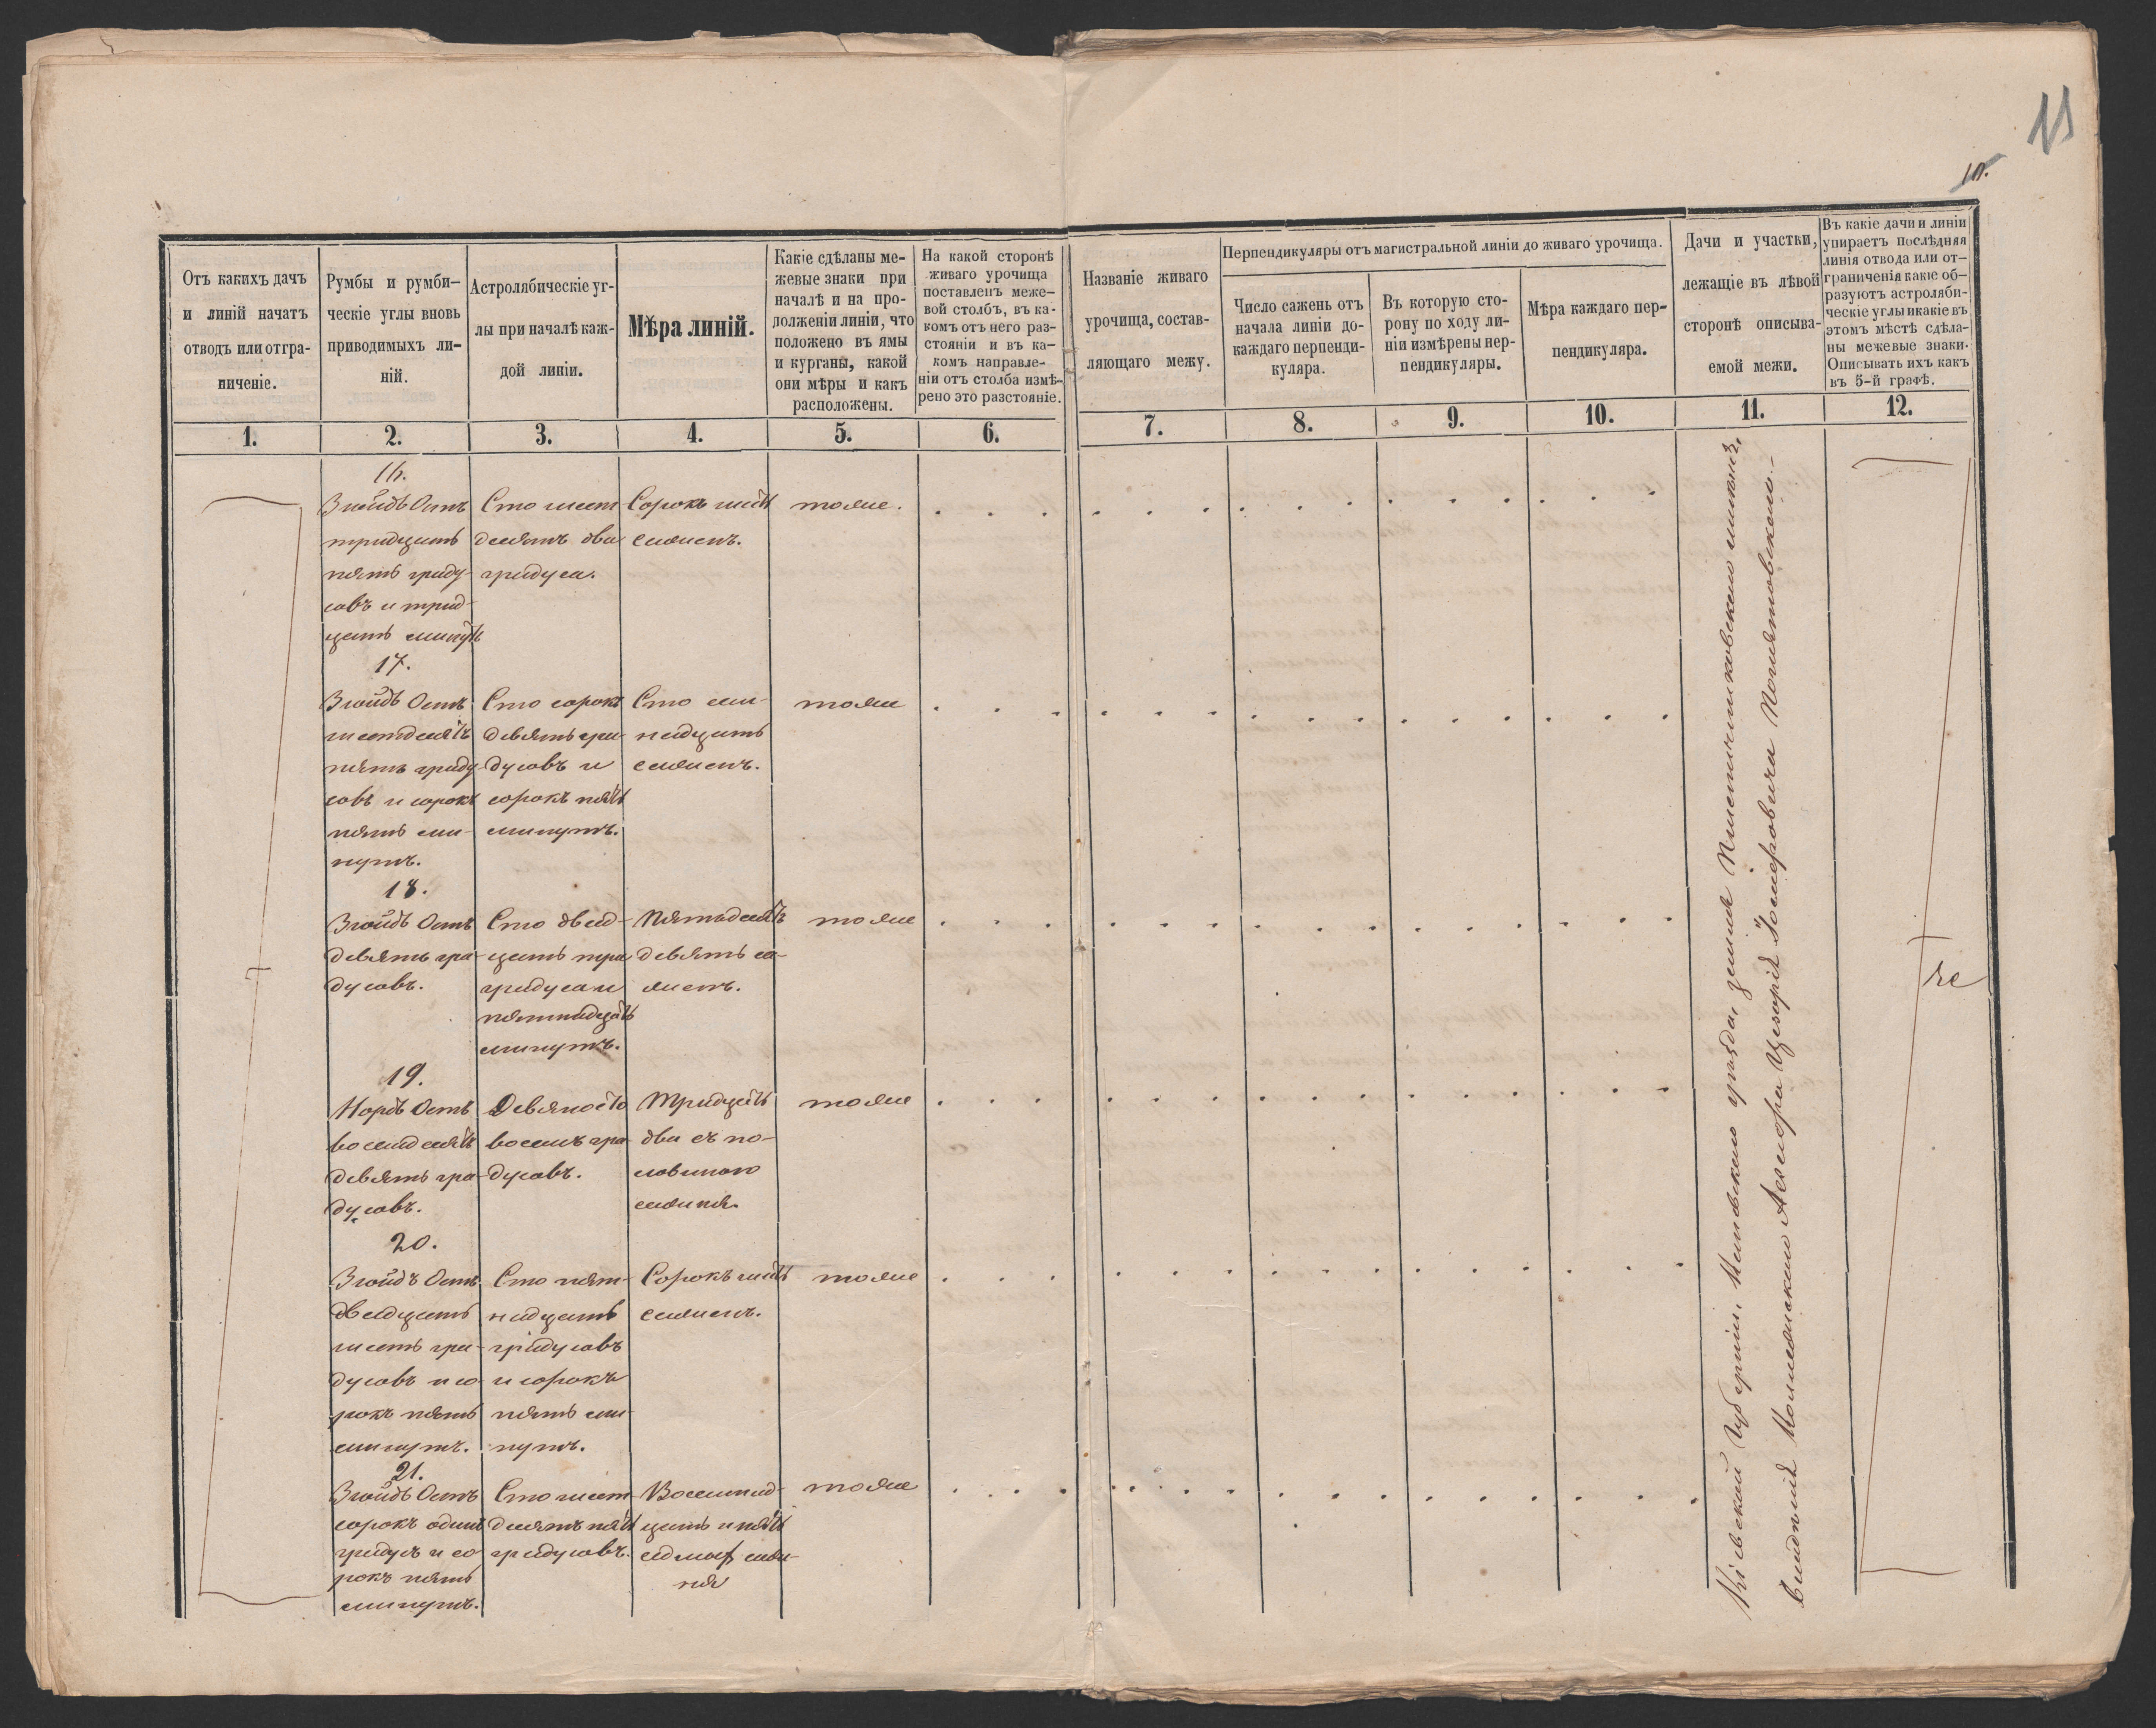 11
10.
Отъ какихъ дачъ
и линій начатъ
отводъ или отгра-
ниченіе.
Румбы и румби-
ческіе углы вновь
приводимыхъ ли-
ній.
Астролябическіе уг-
лы при началѣ каж-
дой линіи.
Мѣра линій.
Какіе сдѣланы ме-
жевые знаки при
началѣ и на про-
долженіи линіи, что
положено въ ямы
и курганы, какой
они мѣры и какъ
расположены.
На какой сторонѣ
живаго урочища
поставленъ меже-
вой столбъ, въ ка-
комъ отъ него раз-
стояніи и въ ка-
комъ направле-
ніи отъ столба измѣ-
рено это разстояніе.
Названіе живаго
урочища, состав-
ляющаго межу.
Перпендикуляры отъ магистральной линіи до живаго урочища.
Число сажень отъ
начала линіи до-
каждаго перпенди-
куляра.
Въ которую сто-
рону по ходу ли-
ніи измѣрены пер-
пендикуляры.
Мѣра каждаго пер-
пендикуляра.
Дачи и участки,
лежащіе въ лѣвой
сторонѣ описыва-
емой межи.
Въ какіе дачи и линіи
упираетъ послѣдняя
линія отвода или от-
граниченія какіе об-
разуютъ астроляби-
ческіе углы и какіе въ
этомъ мѣстѣ сдѣла-
ны межевые знаки.
Описывать ихъ какъ
въ 5-й графѣ.
1.
2.
3.
4.
5.
6.
7.
8.
9.
10.
11.
12.
16.
Зюйдъ Остъ
тридцать
пять граду-
совъ и трид-
цать минутъ
Сто шест
десятъ два
градуса.
Сорокъ шесть
сажень.
тоже.
17.
Зюйдъ Остъ
шестдесятъ
пять граду-
совъ и сорокъ
пять ми-
нутъ.
Сто сорокъ
девять гра-
дусовъ и
сорокъ пять
минутъ.
Сто
надцать
сажень.
тоже
18.
Зюйдъ Остъ
девять гра-
дусовъ.
Сто двад-
цать три
градуса и
пятнадцать
минутъ.
Пятьдесятъ
девять са-
жень.
тоже
19.
Нордъ Остъ
восемдесятъ
девять гра-
дусовъ.
Девяносто
восемь гра-
дусовъ.
Тридцать
два съ по-
ловиною
сажня.
тоже
20.
Зюйдъ Остъ
двадцать
шесть гра-
дусовъ и со-
рокъ пять
минутъ.
Сто пят-
надцать
градусовъ
и сорокъ
пять ми-
нутъ.
Сорокъ шесть
сажень.
тоже
21.
Зюйдъ Остъ
сорокъ одинъ
градусъ и со-
рокъ пять
минутъ.
Сто шест
десятъ пять
градусовъ.
Восемнад-
цать и пять
саж-
ня
тоже
Кіевской Губерніи, уѣзда, земля
владѣнія Коллежскаго Ассесора Цезарія Іосифовича Понятовскаго.